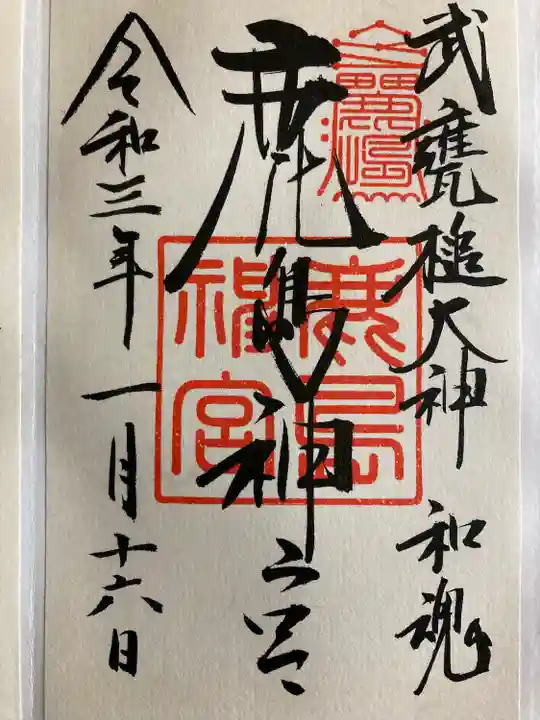 武甕槌大神 和魂
鹿島神宮
令和三年一月十六日
鹿島
神宮